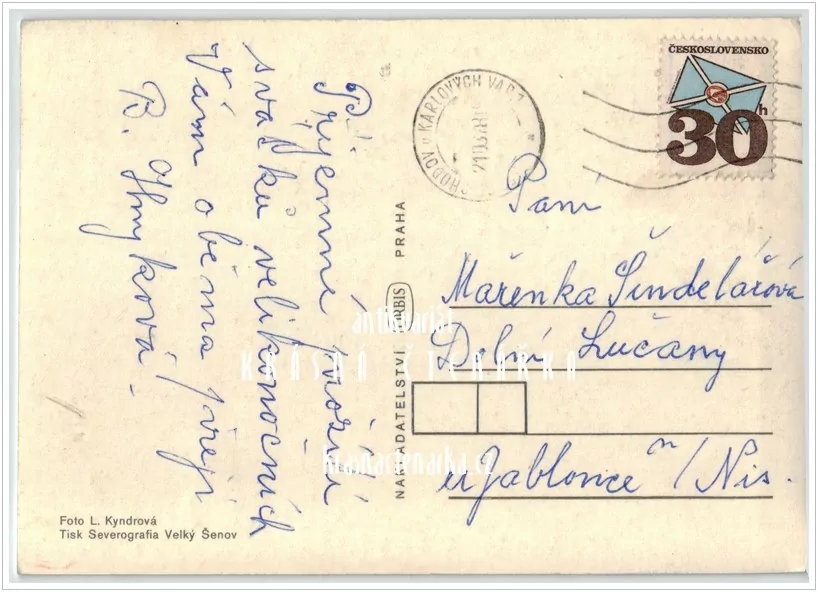 Příjemné prožití
svátků velikonočních
Vám oběma přeji
B.
ČESKOSLOVENSKO
30h
CHODOV U KARLOVÝCH VARŮ
Paní
Mařenka Šindelářová
Dolní Lučany
u Jablonce n/Nis.
NAKLADATELSTVÍ ORBIS PRAHA
antikvariát
KRÁSNÁ ČTENÁŘKA
krasnactenarka.cz
Foto L. Kyndrová
Tisk Severografia Velký Šenov